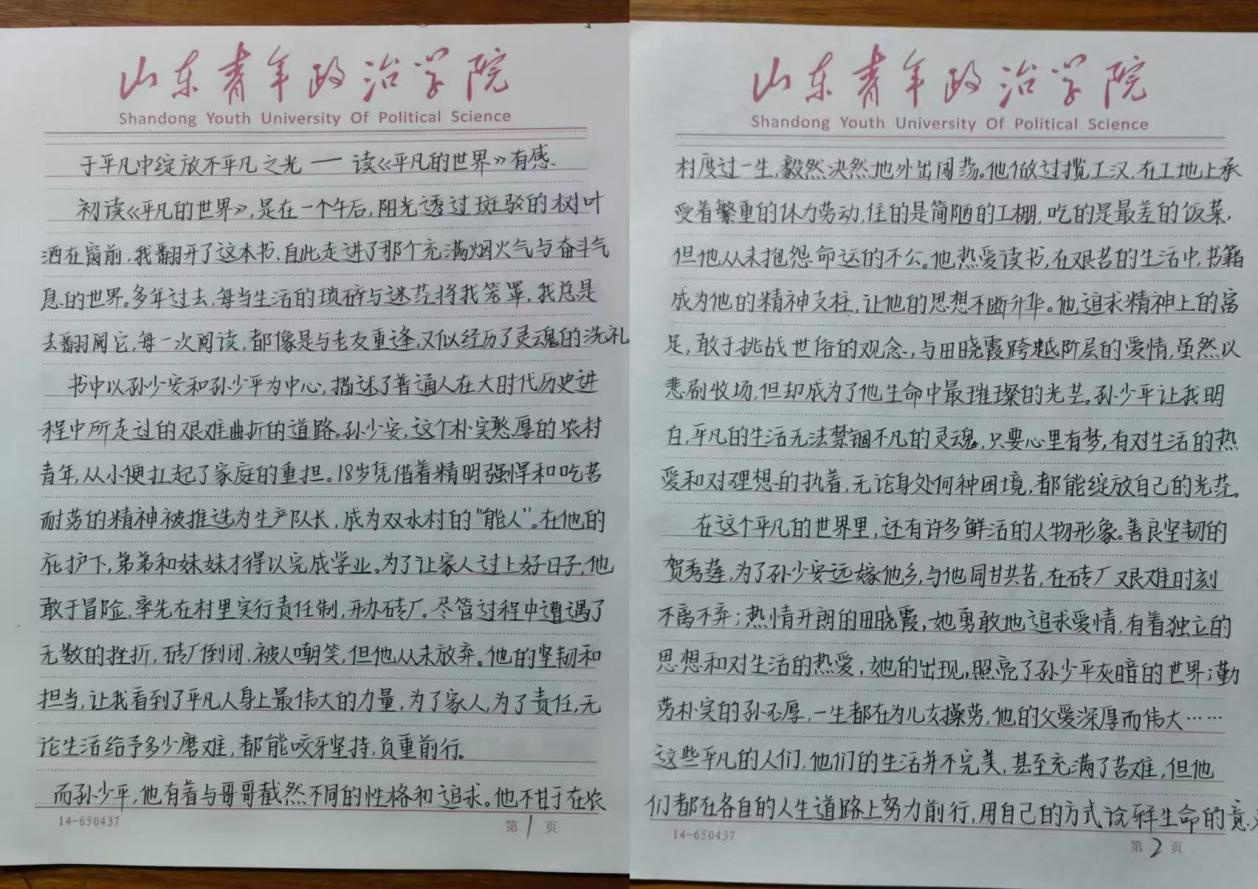 山东青年政治学院
Shandong Youth University Of Political Science
于平凡中绽放不平凡之光——读《平凡的世界》有感.
初读《平凡的世界》,是在一个午后,阳光透过斑驳的树叶
洒在窗前,我翻开了这本书,自此走进了那个充满烟火气与奋斗气
息的世界。多年过去,每当生活的琐碎与迷茫将我笼罩,我总是
去翻阅它,每一次阅读,都像是与老友重逢,又似经历了灵魂的洗礼
书中以孙少安和孙少平为中心,描述了普通人在大时代历史进
程中所走过的艰难曲折的道路。孙少安,这个朴实憨厚的农村
青年,从小便扛起了家庭的重担。18岁凭借着精明强悍和吃苦
耐劳的精神被推选为生产队长,成为双水村的“能人”。在他的
庇护下,弟弟和妹妹才得以完成学业。为了让家人过上好日子,他
敢于冒险,率先在村里实行责任制,开办砖厂。尽管过程中遭遇了
无数的挫折,砖厂倒闭、被人嘲笑,但他从未放弃。他的坚韧和
担当,让我看到了平凡人身上最伟大的力量,为了家人,为了责任,无
论生活给予多少磨难,都能咬牙坚持,负重前行。
而孙少平,他有着与哥哥截然不同的性格和追求。他不甘于在农
14-650437
第1页
山东青年政治学院
Shandong Youth University Of Political Science
村度过一生,毅然决然地外出闯荡。他做过揽工汉,在工地上承
受着繁重的体力劳动,住的是简陋的工棚,吃的是最差的饭菜,
但他从未抱怨命运的不公。他热爱读书,在艰苦的生活中,书籍
成为他的精神支柱,让他的思想不断升华。他追求精神上的富
足,敢于挑战世俗的观念,与田晓霞跨越阶层的爱情,虽然以
悲剧收场,但却成为了他生命中最璀璨的光芒。孙少平让我明
白,平凡的生活无法禁锢不凡的灵魂,只要心里有梦,有对生活的热
爱和对理想的执着,无论身处何种困境,都能绽放自己的光芒。
在这个平凡的世界里,还有许多鲜活的人物形象。善良坚韧的
贺秀莲,为了孙少安远嫁他乡,与他同甘共苦,在砖厂艰难时刻
不离不弃;热情开朗的田晓霞,她勇敢地追求爱情,有着独立的
思想和对生活的热爱,她的出现,照亮了孙少平灰暗的世界;勤
劳朴实的孙玉厚,一生都在为儿女操劳,他的父爱深厚而伟大……
这些平凡的人们,他们的生活并不完美,甚至充满了苦难,但他
们都在各自的人生道路上努力前行,用自己的方式诠释生命的意义
14-650437
第2页